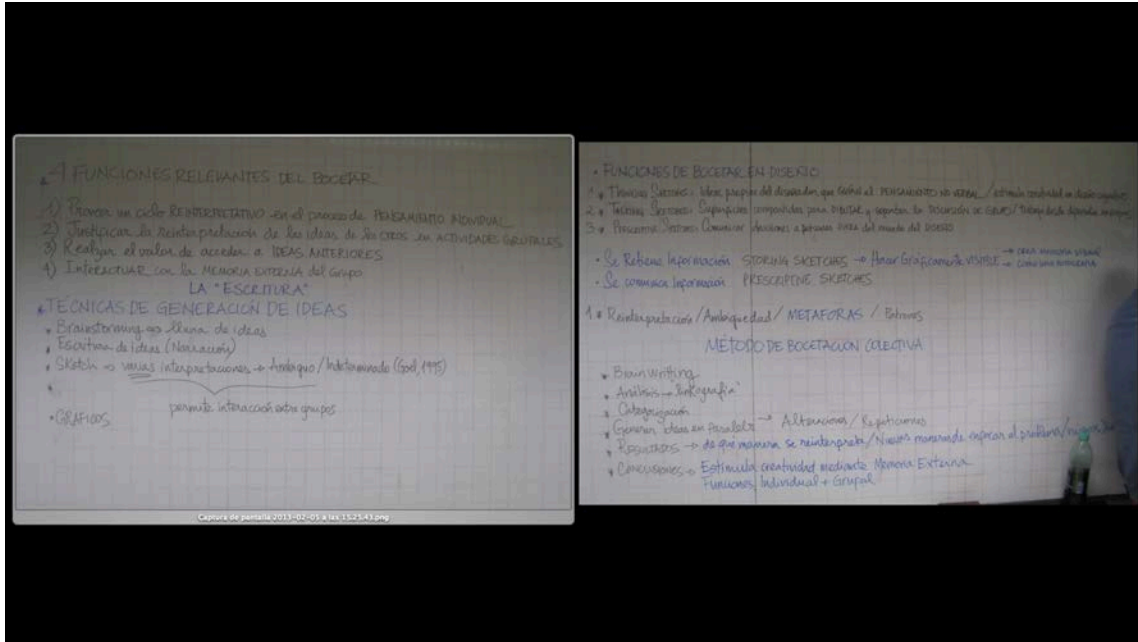 4 FUNCIONES RELEVANTES DEL BOCETAR
1) Proveer un ciclo REINTERPRETATIVO en el proceso de PENSAMIENTO INDIVIDUAL
2) Justificar la reinterpretación de las ideas de los otros en ACTIVIDADES GRUPALES
3) Realzar el valor de acceder a IDEAS ANTERIORES
4) INTERACTUAR con la MEMORIA EXTERNA del Grupo
LA "ESCRITURA"
TÉCNICAS DE GENERACIÓN DE IDEAS
Brainstorming lluvia de ideas
Escritura de ideas (Narración)
Sketch → varias interpretaciones → Ambiguo / Indeterminado (Goel, 1995)
permite interacción entre grupos
• GRÁFICOS
Captura de pantalla 2013-02-05 a las 13.25.43.png
• FUNCIONES DE BOCETAR EN DISEÑO
1 • Thinking Sketches: Ideas propias del diseñador que al PENSAMIENTO NO VERBAL / estimula creatividad en
2 • Talking Sketches: compartidas para DIBUJAR y la DISCUSIÓN DE GRUPO /
3 • Prescriptive Sketches: Comunicar decisiones a personas fuera del mundo del DISEÑO
• Se Retiene Información STORING SKETCHES → Hacer Gráficamente VISIBLE → CREA MEMORIA VISUAL
→ COMO UNA
• Se comunica información PRESCRIPTIVE SKETCHES
1 • Reinterpretación / Ambigüedad / METÁFORAS / Patrones
MÉTODO DE BOCETACIÓN COLECTIVA
• Brain Writting
• Análisis → linkografía
• Categorización
• Generar ideas en Paralelo → Alteraciones / Repeticiones
• RESULTADOS → de qué manera se reinterpreta / Nuevas maneras de enfocar el problema /
• CONCLUSIONES → Estimula creatividad mediante Memoria Externa
Funciones Individual + Grupal